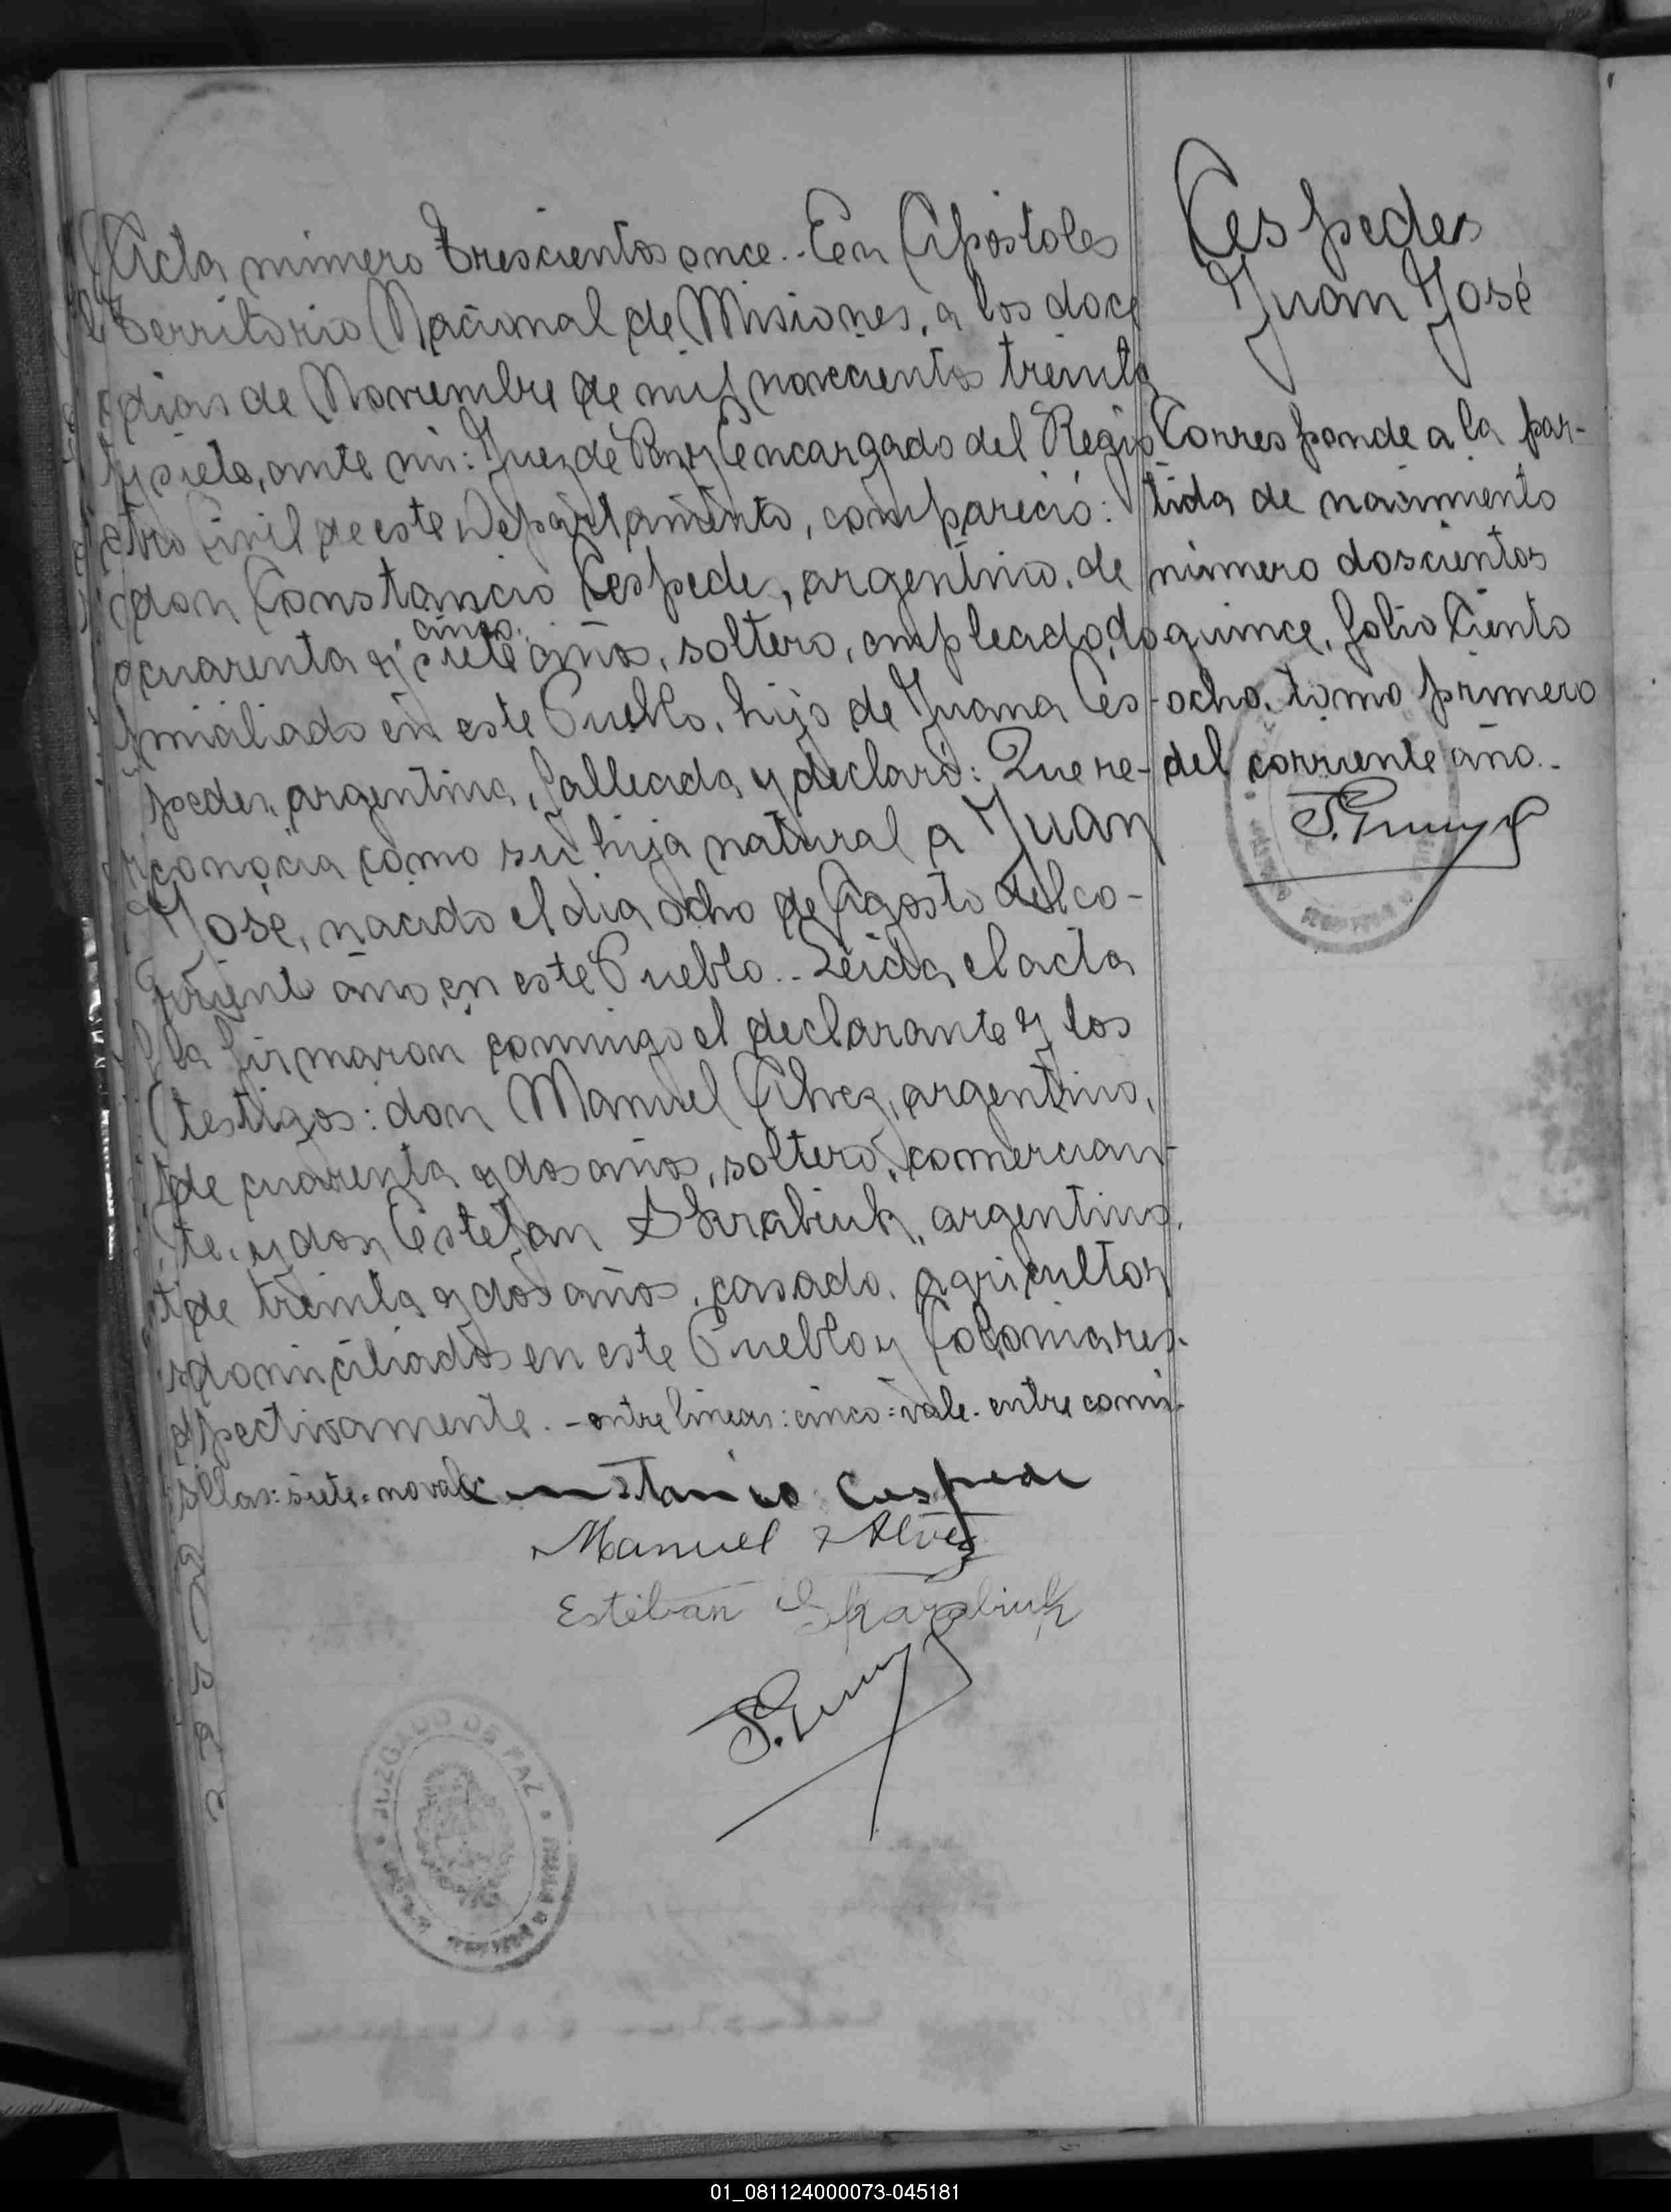 Acta número trescientos once.- En Apóstoles
Territorio Nacional de Misiones, a los doce
dias de Noviembre de mil novecientos treinta
y siete, ante mi: Juez de Paz y Encargado del Regis
tro Civil de este Departamento, compareció:
don Constancio Cespede, argentino, de
cinco.
cuarenta y "siete" años, soltero, empleado, do
miciliado en este Pueblo, hijo de Juana Ces-
pedes, argentina, fallecida y declaró: Que re-
conocia como su hijo natural a Juan
José, nacido el dia ocho de Agosto del co-
rriente año, en este Pueblo.- Leida el acta
la firmaron conmigo el declarante y los
testigos: don Manuel Alvez, argentino,
de cuarenta y dos años, soltero, comercian-
te, y don Estefan Skrabiuk, argentino,
de treinta y dos años, casado, agricultor
domiciliados en este Pueblo y Colonia res-
pectivamente.- entre lineas: cinco = vale. entre comi-
llas: siete = no vale
Constancio Cespede
Manuel Alvez
Esteban Skarabiuk
JUZGADO DE PAZ
Cespedes
Juan José
Corresponde a la par-
tida de nacimiento
número doscientos
quince, folio ciento
ocho, tomo primero
del corriente año.-
01_081124000073-045181